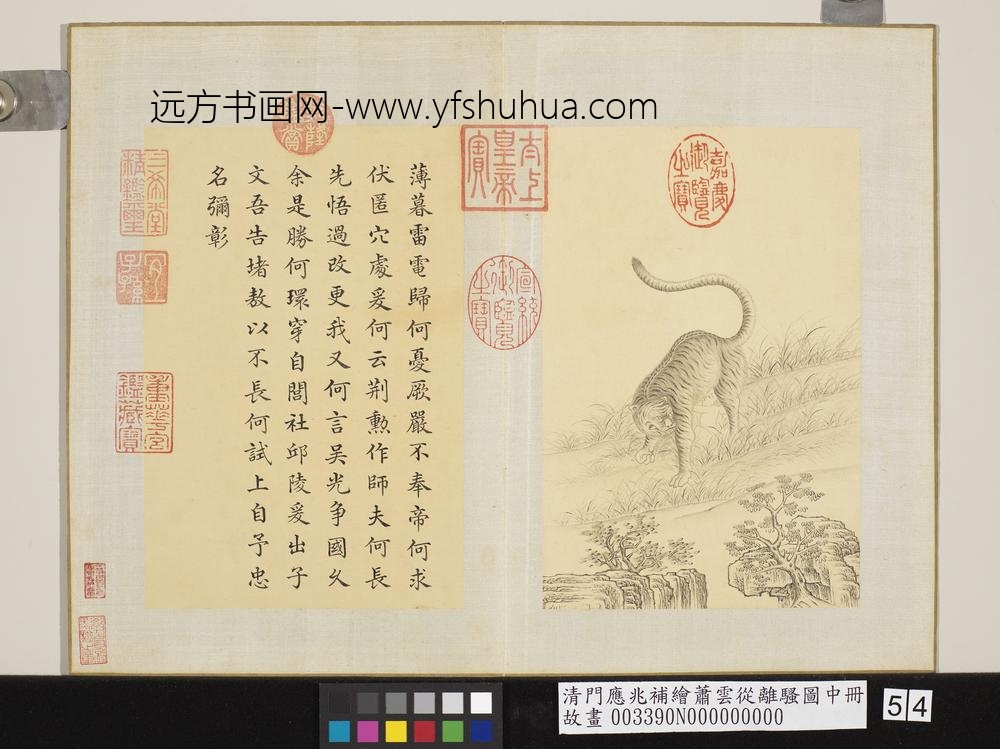 远方书画网-www.yfshuhua.com
薄暮雷電歸何憂厥嚴不奉帝何求
伏匿穴處爰何云荆勲作師夫何長
先悟過改更我又何言吴光争國久
余是勝何環穿自閭社邱陵爰出子
文吾告堵敖以不長何試上自予忠
名彌彰
太上皇帝
寶
嘉慶
御覽
之寶
宣統
御覽
之寶
三希堂
精鑑璽
宜
子孫
重華宮
鑑藏寶
清門應兆補繪蕭雲從離騷圖中冊
故畫 003390N000000000
54